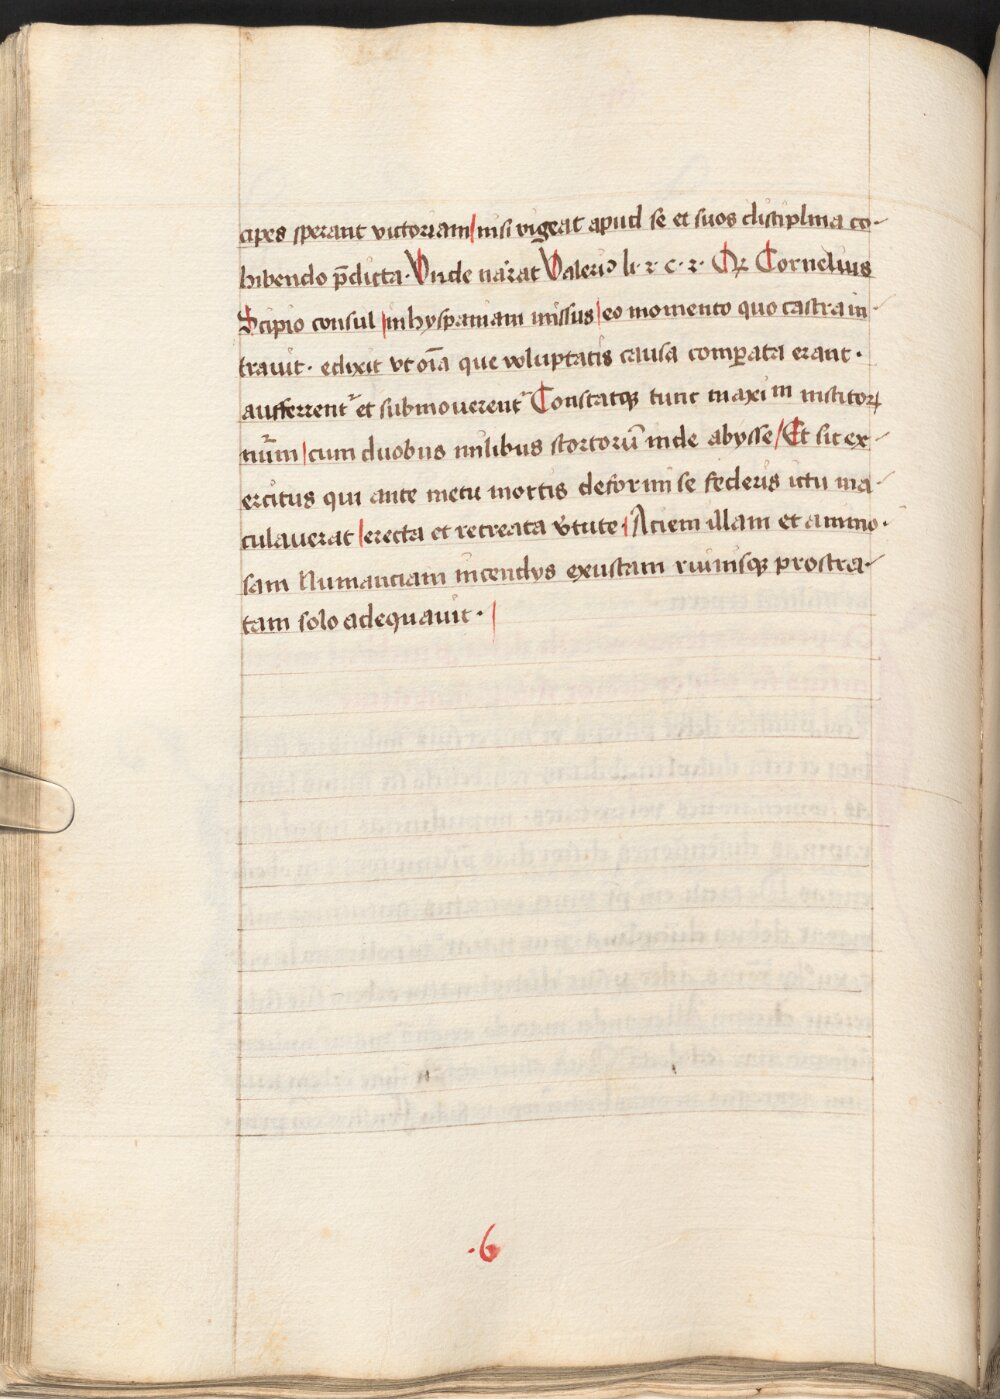 cipes sperant victoriam / nisi vigeat apud se et suos disciplina co-
hibendo p̄dicta. Unde narrat Valeriꝰ li. 2. c. 2. Qꝛ Cornelius
Scipio consul / in hyspaniam missus / eo momento quo castra in-
travit. edixit ut oīa que voluptatis causa comparata erant.
aufferrentʳ et submoverentʳ Constatqꝫ tunc maxim institorꝝ
nūm / cum duobus milibus scortorū inde abysse / Et sic ex-
ercitus qui ante metu mortis deformi se federis ictu ma-
culaverat / erecta et recreata v̄tute / Aciem illam et animo-
sam Numanciam incendys exustam ruinisqꝫ prostra-
tam solo adequavit. /
.6